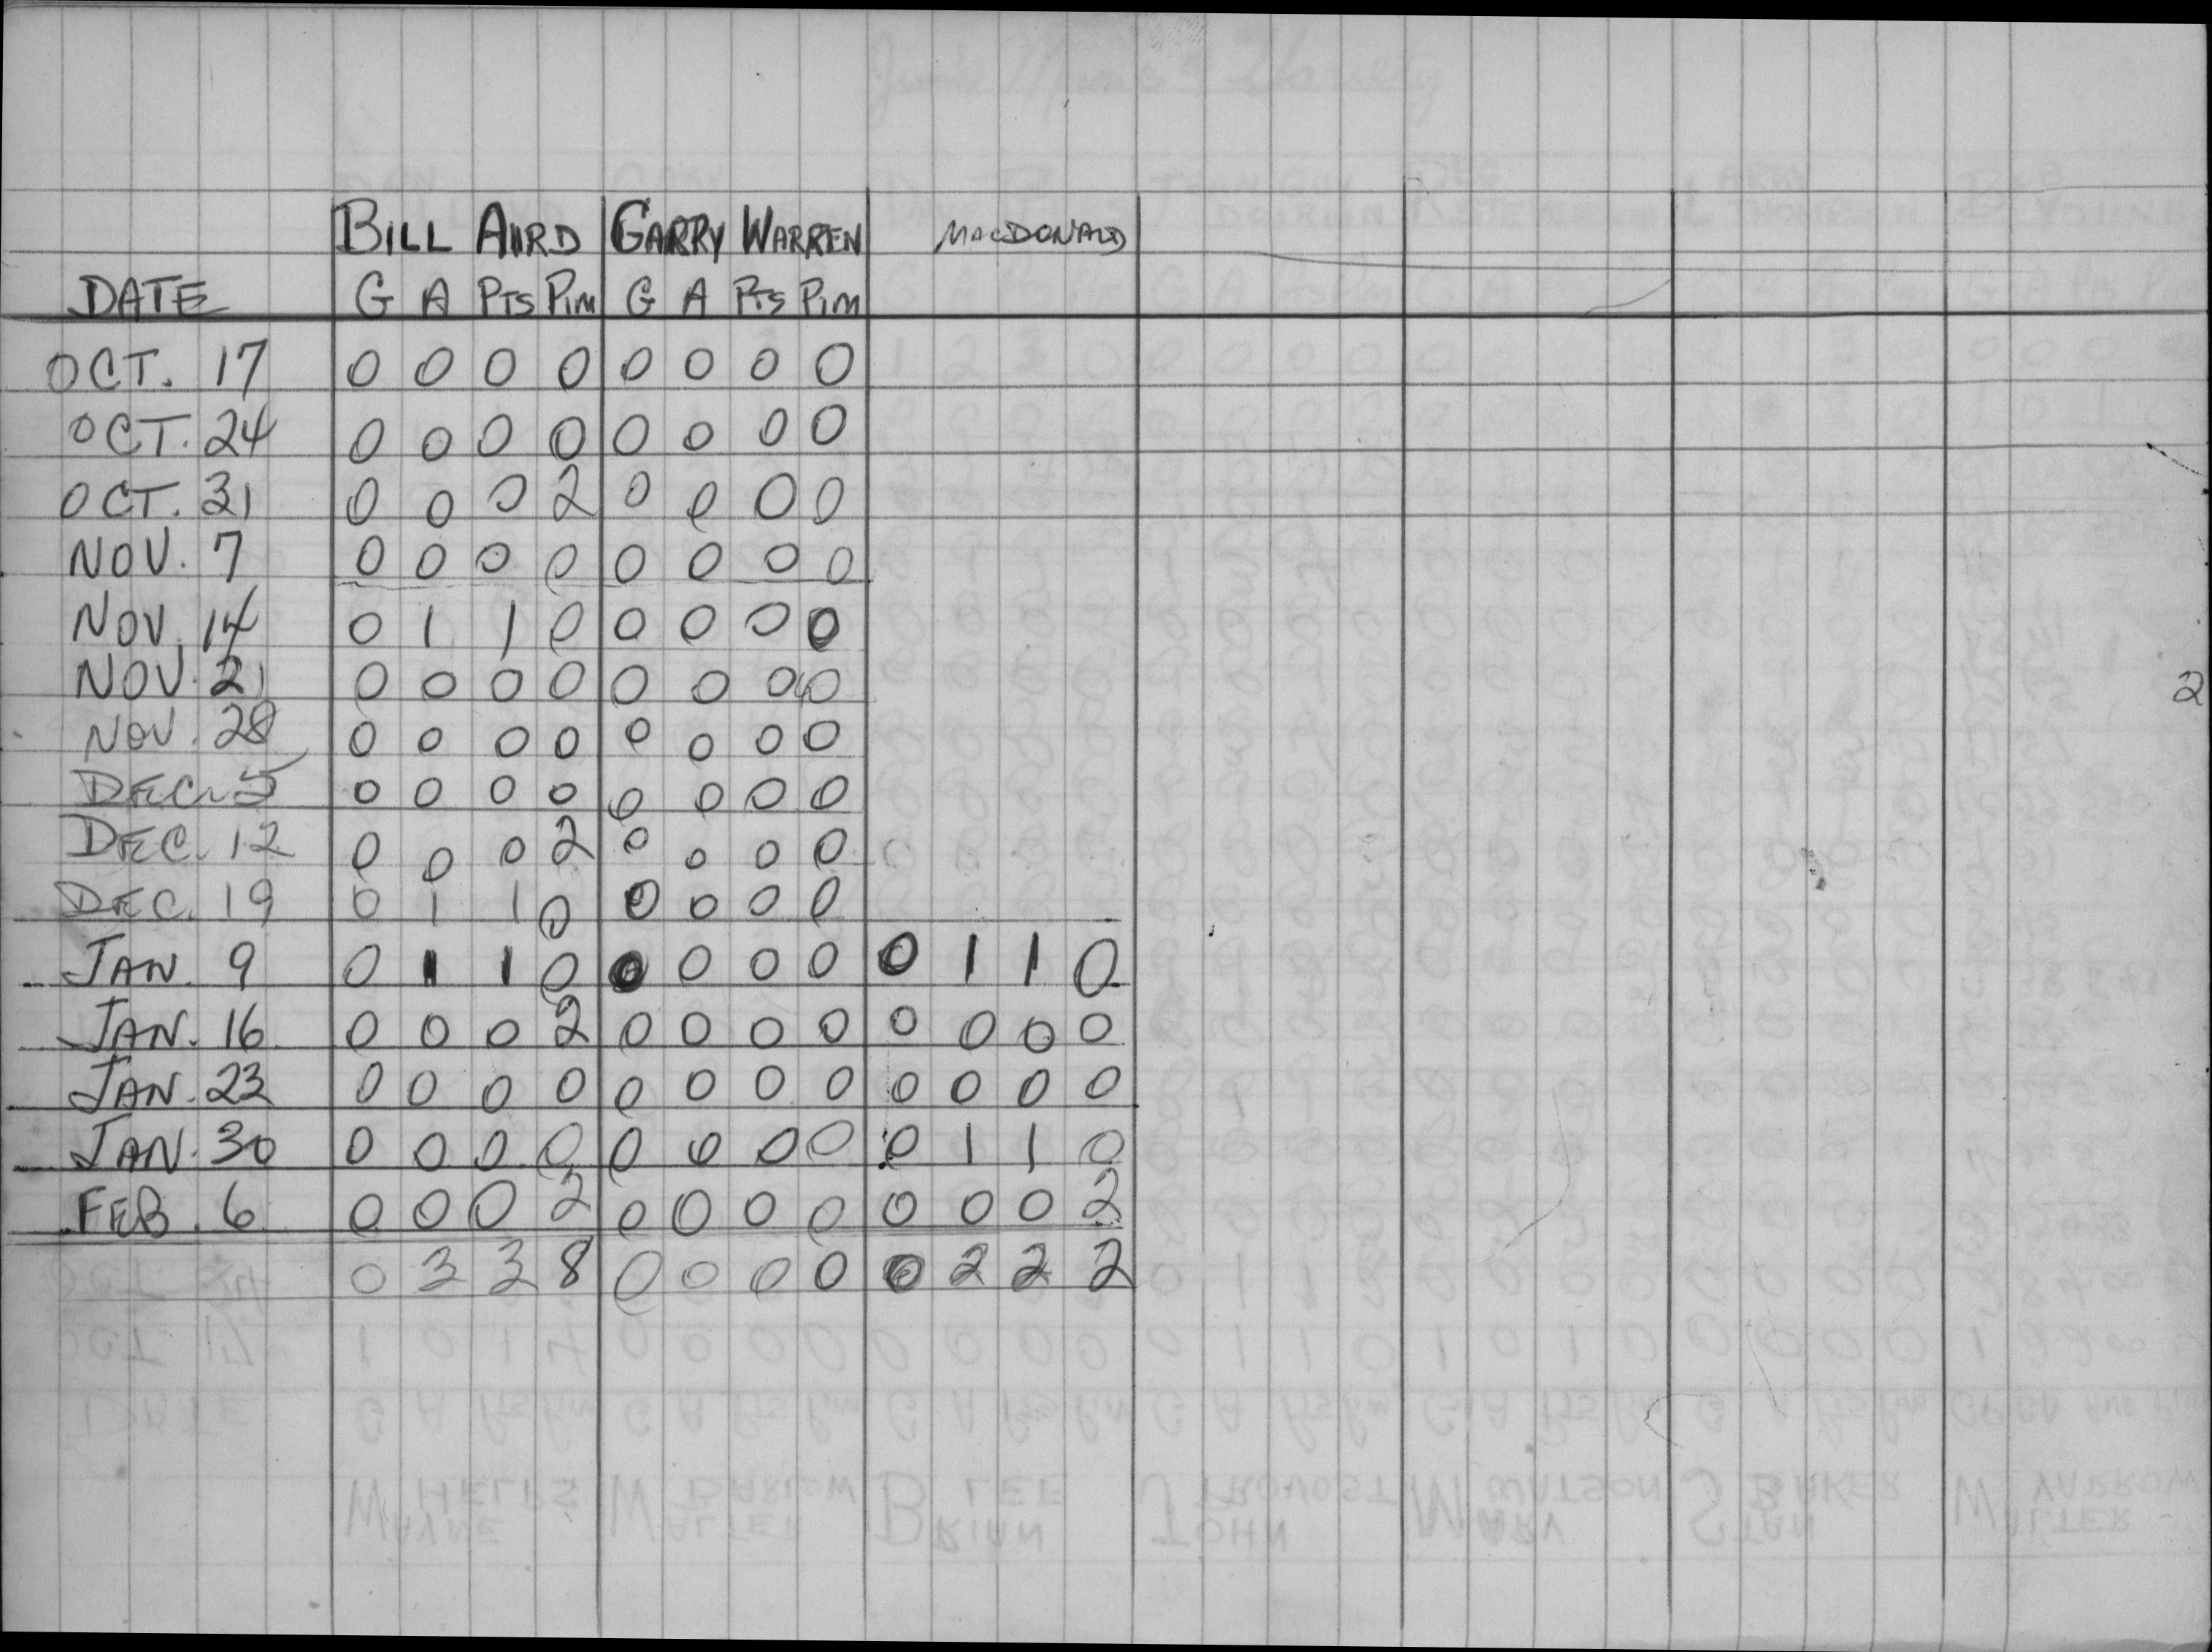 BILL AIRD GARRY WARREN MACDONALD
DATE G A PTS PIM G A PTS PIM
OCT. 17 0 0 0 0 0 0 0 0
OCT. 24 0 0 0 0 0 0 0 0
OCT. 31 0 0 0 2 0 0 0 0
NOV. 7 0 0 0 0 0 0 0 0
NOV. 14 0 1 1 0 0 0 0 0
NOV. 21 0 0 0 0 0 0 0 0
2
NOV. 28 0 0 0 0 0 0 0 0
DEC. 5 0 0 0 0 0 0 0 0
DEC. 12 0 0 0 2 0 0 0 0
DEC. 19 0 1 1 0 0 0 0 0
JAN. 9 0 1 1 0 0 0 0 0 0 1 1 0
JAN. 16 0 0 0 2 0 0 0 0 0 0 0 0
JAN. 23 0 0 0 0 0 0 0 0 0 0 0 0
JAN. 30 0 0 0 0 0 0 0 0 0 1 1 0
FEB. 6 0 0 0 2 0 0 0 0 0 0 0 2
0 3 3 8 0 0 0 0 0 2 2 2